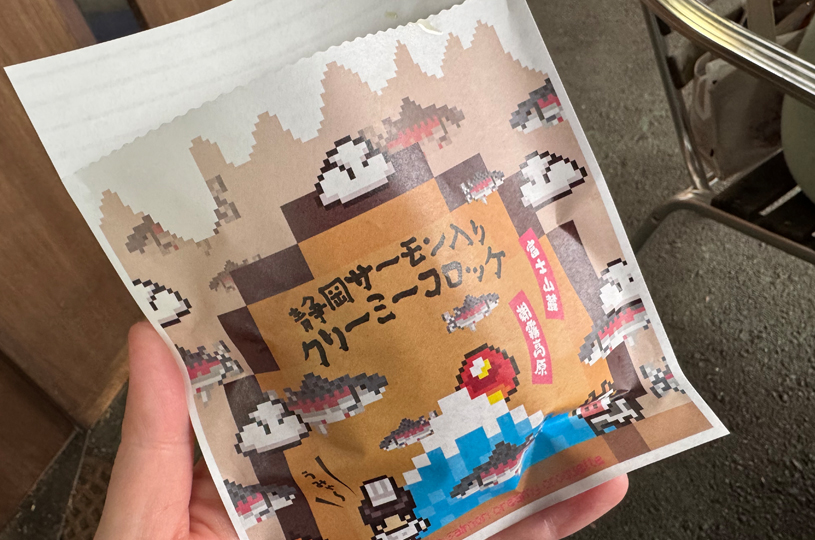 静岡サーモン入り
クリーミーコロッケ
富士山麓
朝霧高原
うみゃ〜
salmon creamy croquette